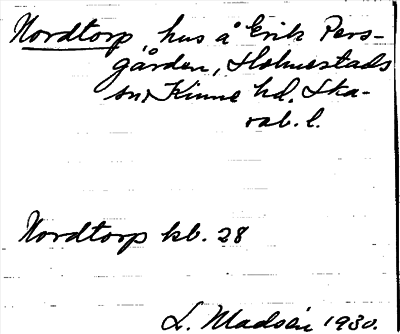 Nordtorp, hus å Erik Pers-
gården, Holmestads
sn, Kinne hd. Ska-
rab. l.
Nordtorp kb. 28
L. Madsén 1930.